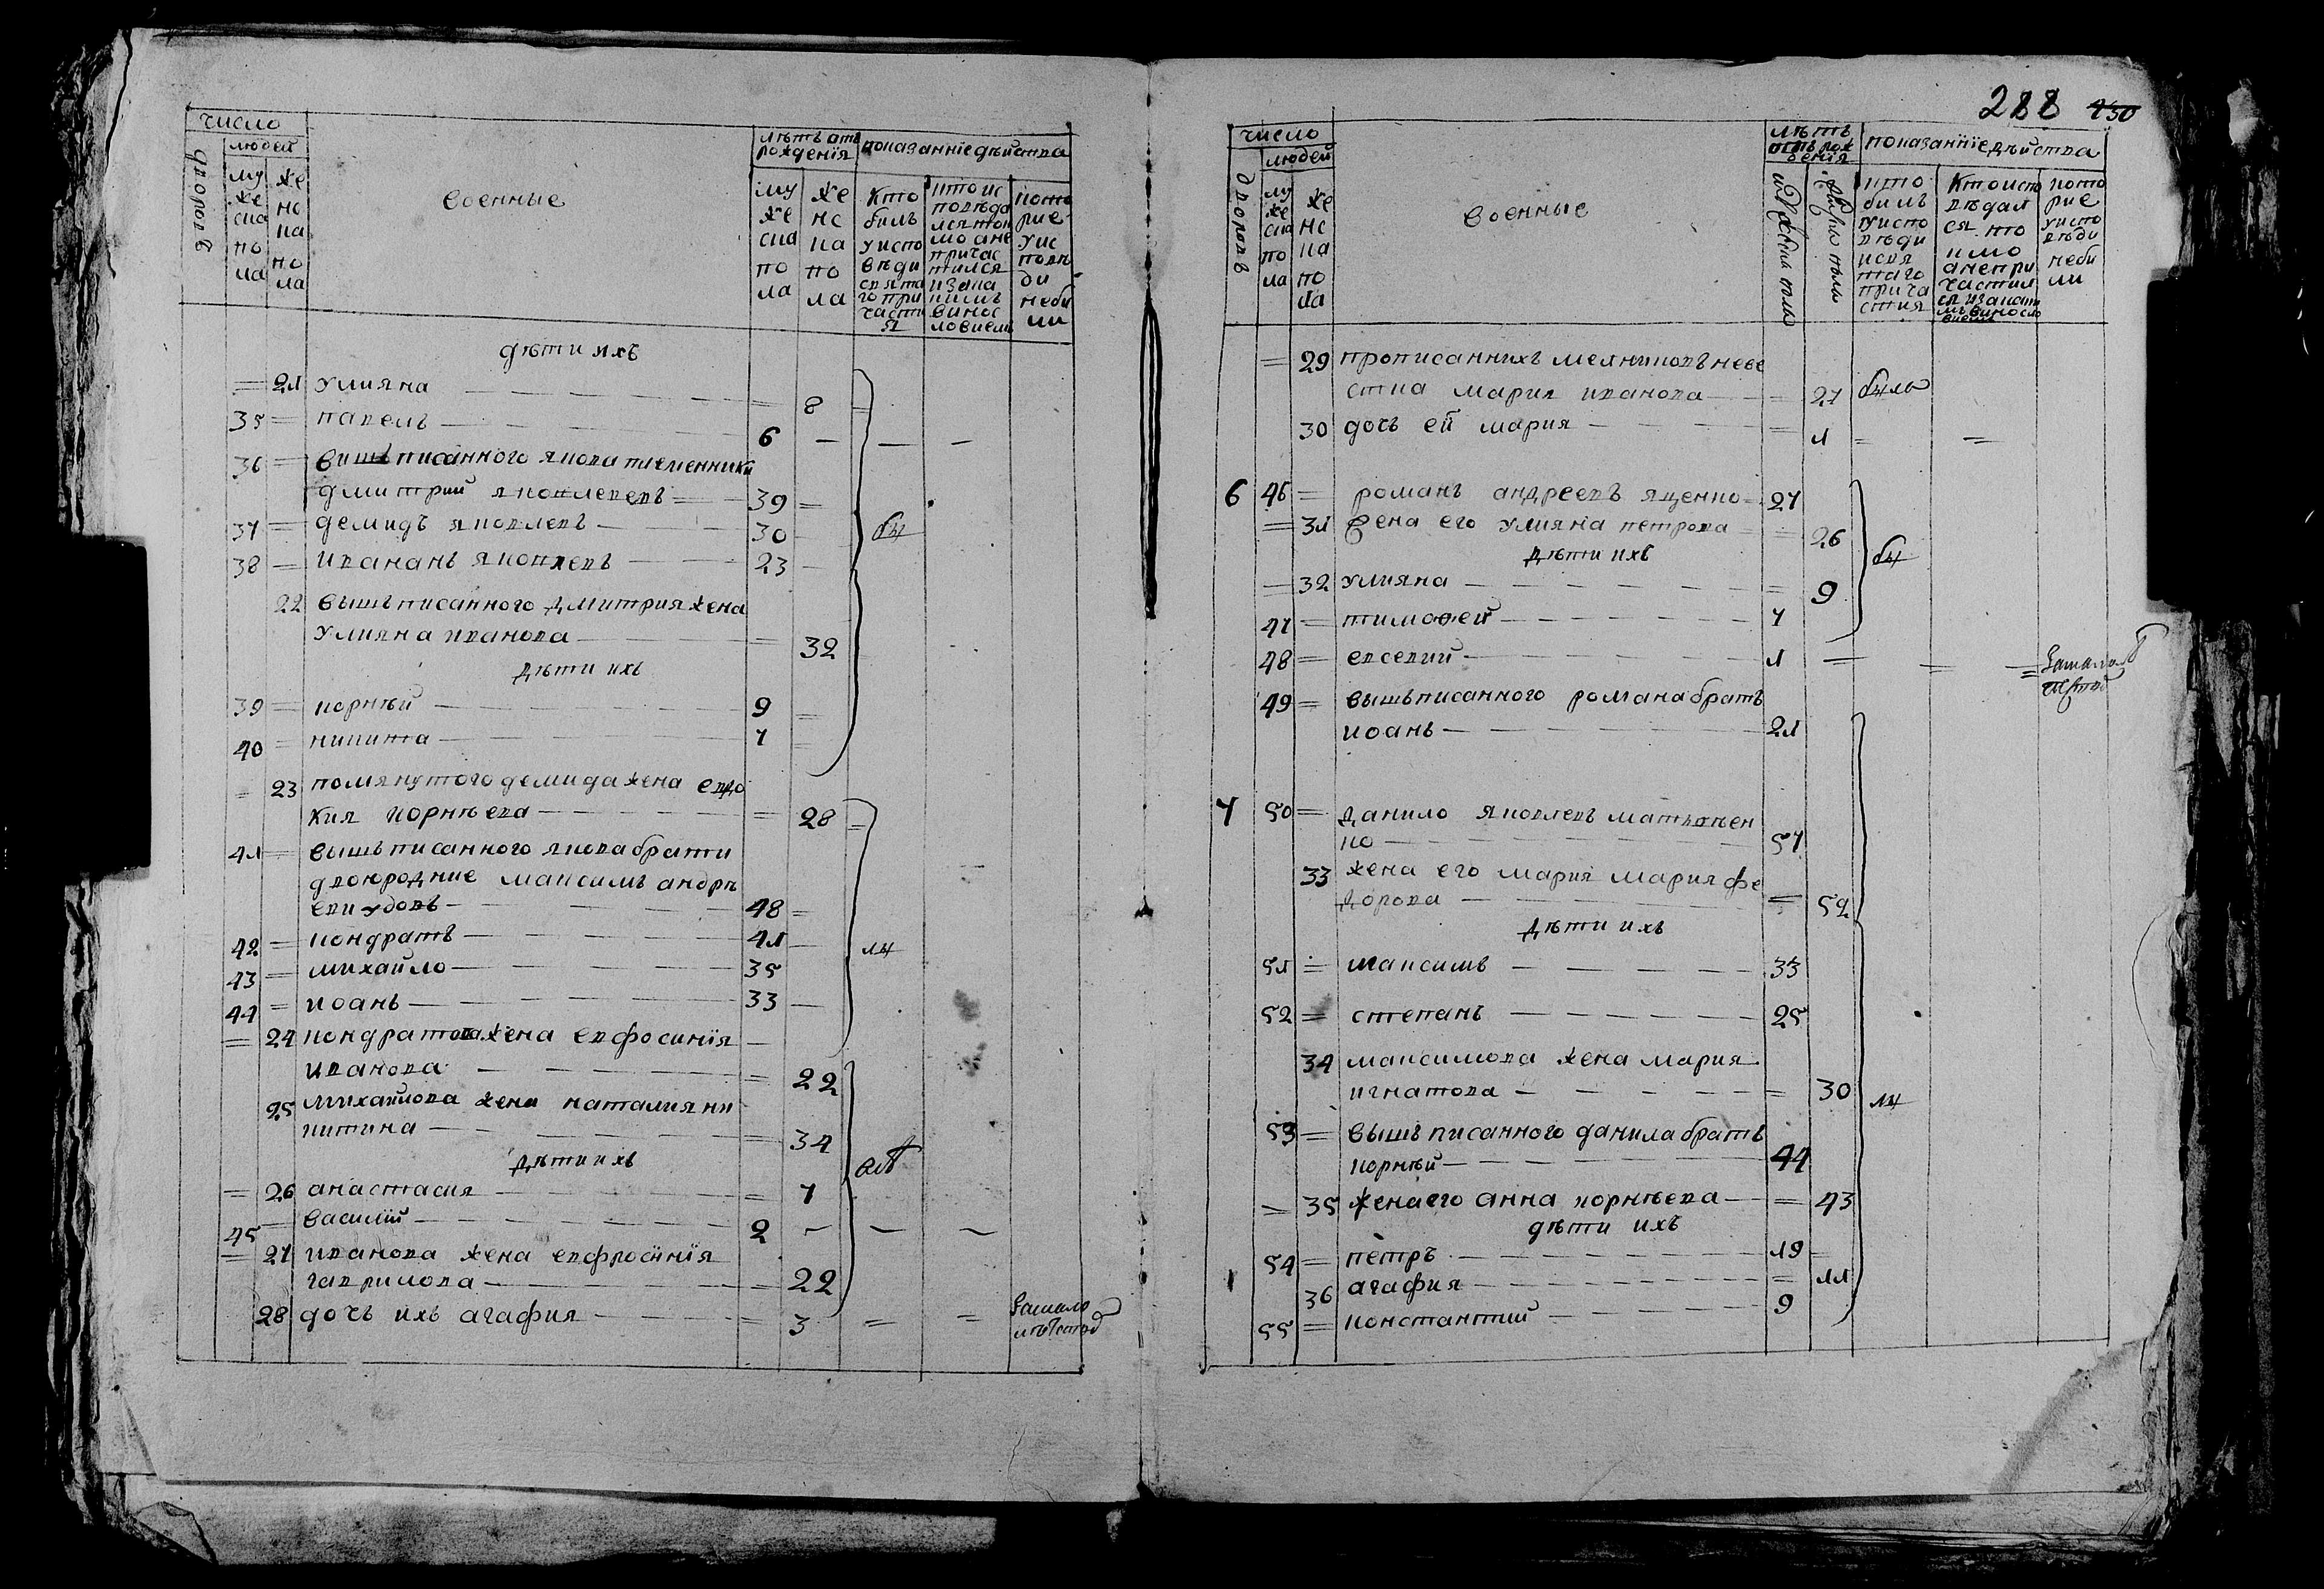 число
людей
дворовъ
мужеска пола
женска пола
военные
лѣтъ отъ рожденія
мужеска пола
женска пола
показанніе дѣйства
кто билъ у исповѣди святаго причастия
кто исповѣдался токмо а не причастился и за каким винословием
которие у исповѣди небили
дѣти ихъ
= 21 улияна — — = 8 =
35 = павелъ — — 6 — — —
36 = вишъписанного якова племенники
дмитрий яковлевъ — 39 =
37 = демидъ яковлевъ — 30 — бы
38 = иванань яковлевъ — 23 —
22 вышъписанного дмитрия жена
улияна иванова — = 32
дѣти ихъ
39 = корнѣй — 9 =
40 = никита — 7 =
= 23 помянутого демида жена евдо
кия корнѣева — = 28 =
41 = вышъписанного якова брати
двоюродние максимъ андрѣ
— 48 =
42 = кондратъ — 41 — лы
43 = михайло — 35
44 = иоанъ — 33 —
= 24 кондратова жена евфосинїя —
иванова — = 22
25 михайлова жена наталия ни
китина — = 34
дѣти ихъ
= 26 анастасия — = 7
45 = василїй — 2 — — —
= 27 иванова жена евфросїнїя
гаврилова — = 22
28 дочъ ихъ агафия — = 3 = = замало
лѣтством
288 430
число
людей
дворовъ
мужеска пола
женска пола
военные
лѣтъ отъ рожденія
показанніе дѣйства
кто билъ у исповѣди и святаго причастия
кто исповѣдался токмо а непричастился и за каким винословием
которие у исповѣди небили
= 29 прописаннихъ мелниковъ неве
стка мария иванова — = 27 былъ
30 дочъ ей мария — = 1 = =
6 46 = романъ андреевъ яценко = 27
= 31 жена его улияна петрова = = 26
дѣти ихъ бы
= 32 улияна — = 9
47 = тимофей — 7
48 = евсевий — 1 — = = замалол
ѣтством
49 = вышъписанного романа братъ
иоанъ — 21
7 50 = данило яковлевъ матвѣен
ко — 57
33 жена его мария мария фе
дорова — = 52
дѣти ихъ
51 = максимъ — 33
52 = степанъ — 25
34 максимова жена мария
игнатова — = 30 лы
53 = вышъписанного данила братъ
корнѣй — 44
= 35 жена его анна корнѣева — = 43
дѣти ихъ
54 = петръ — 19 —
36 агафия — = 11
55 = константий — 9